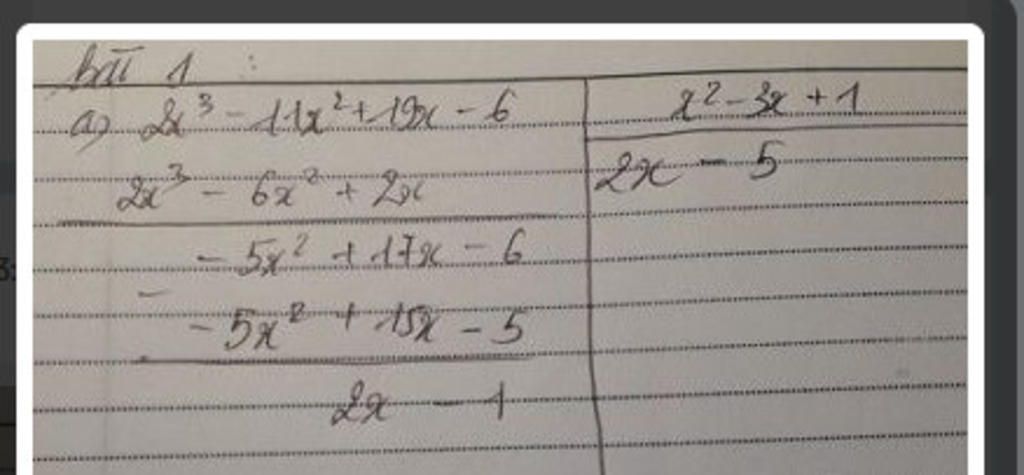 bài 1 :
a) 2x³ - 11x² + 19x - 6 | x² - 3x + 1
2x³ - 6x² + 2x | 2x - 5
- 5x² + 17x - 6
-
- 5x² + 15x - 5
2x - 1
3: